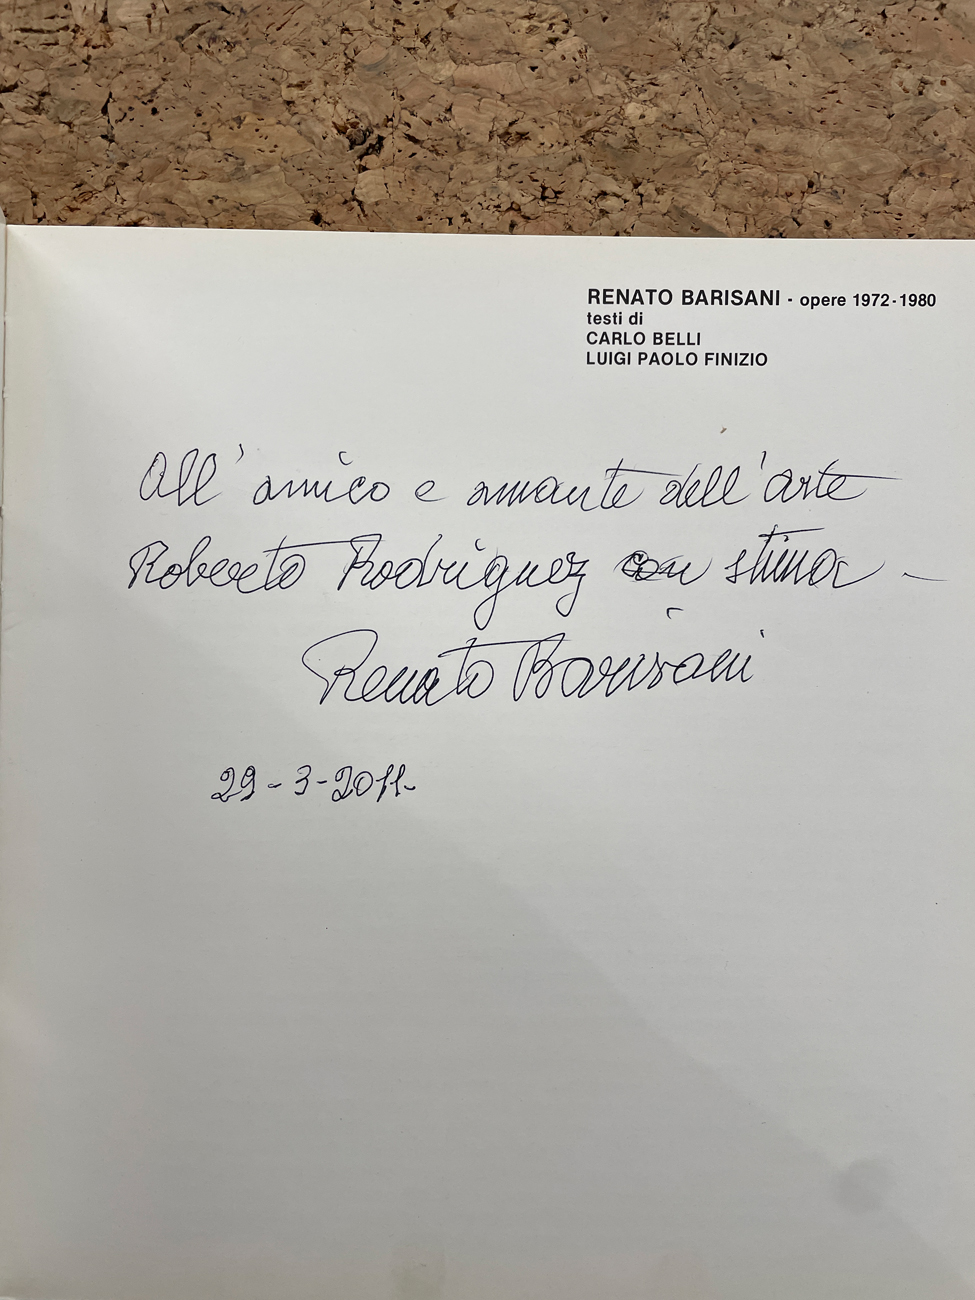 RENATO BARISANI - opere 1972-1980
testi di
CARLO BELLI
LUIGI PAOLO FINIZIO
All' amico e amante dell'arte
Roberto Rodriguez con stima -
Renato Barisani
29-3-2011-